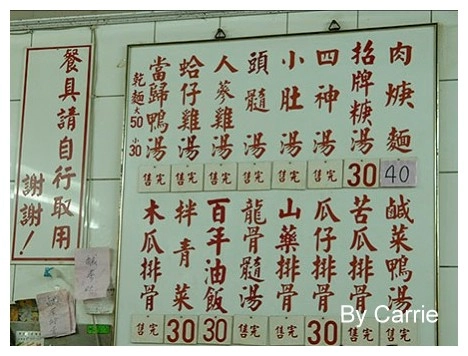 肉焿麵
40
招牌焿湯
30
四神湯
售完
小肚湯
售完
頭髓湯
售完
人蔘雞湯
售完
蛤仔雞湯
售完
當歸鴨湯
售完
乾麵大50小30
鹹菜鴨湯
售完
苦瓜排骨
售完
瓜仔排骨
30
山藥排骨
售完
龍骨髓湯
售完
百年油飯
30
拌青菜
30
木瓜排骨
售完
餐具請自行取用
謝謝!
By Carrie